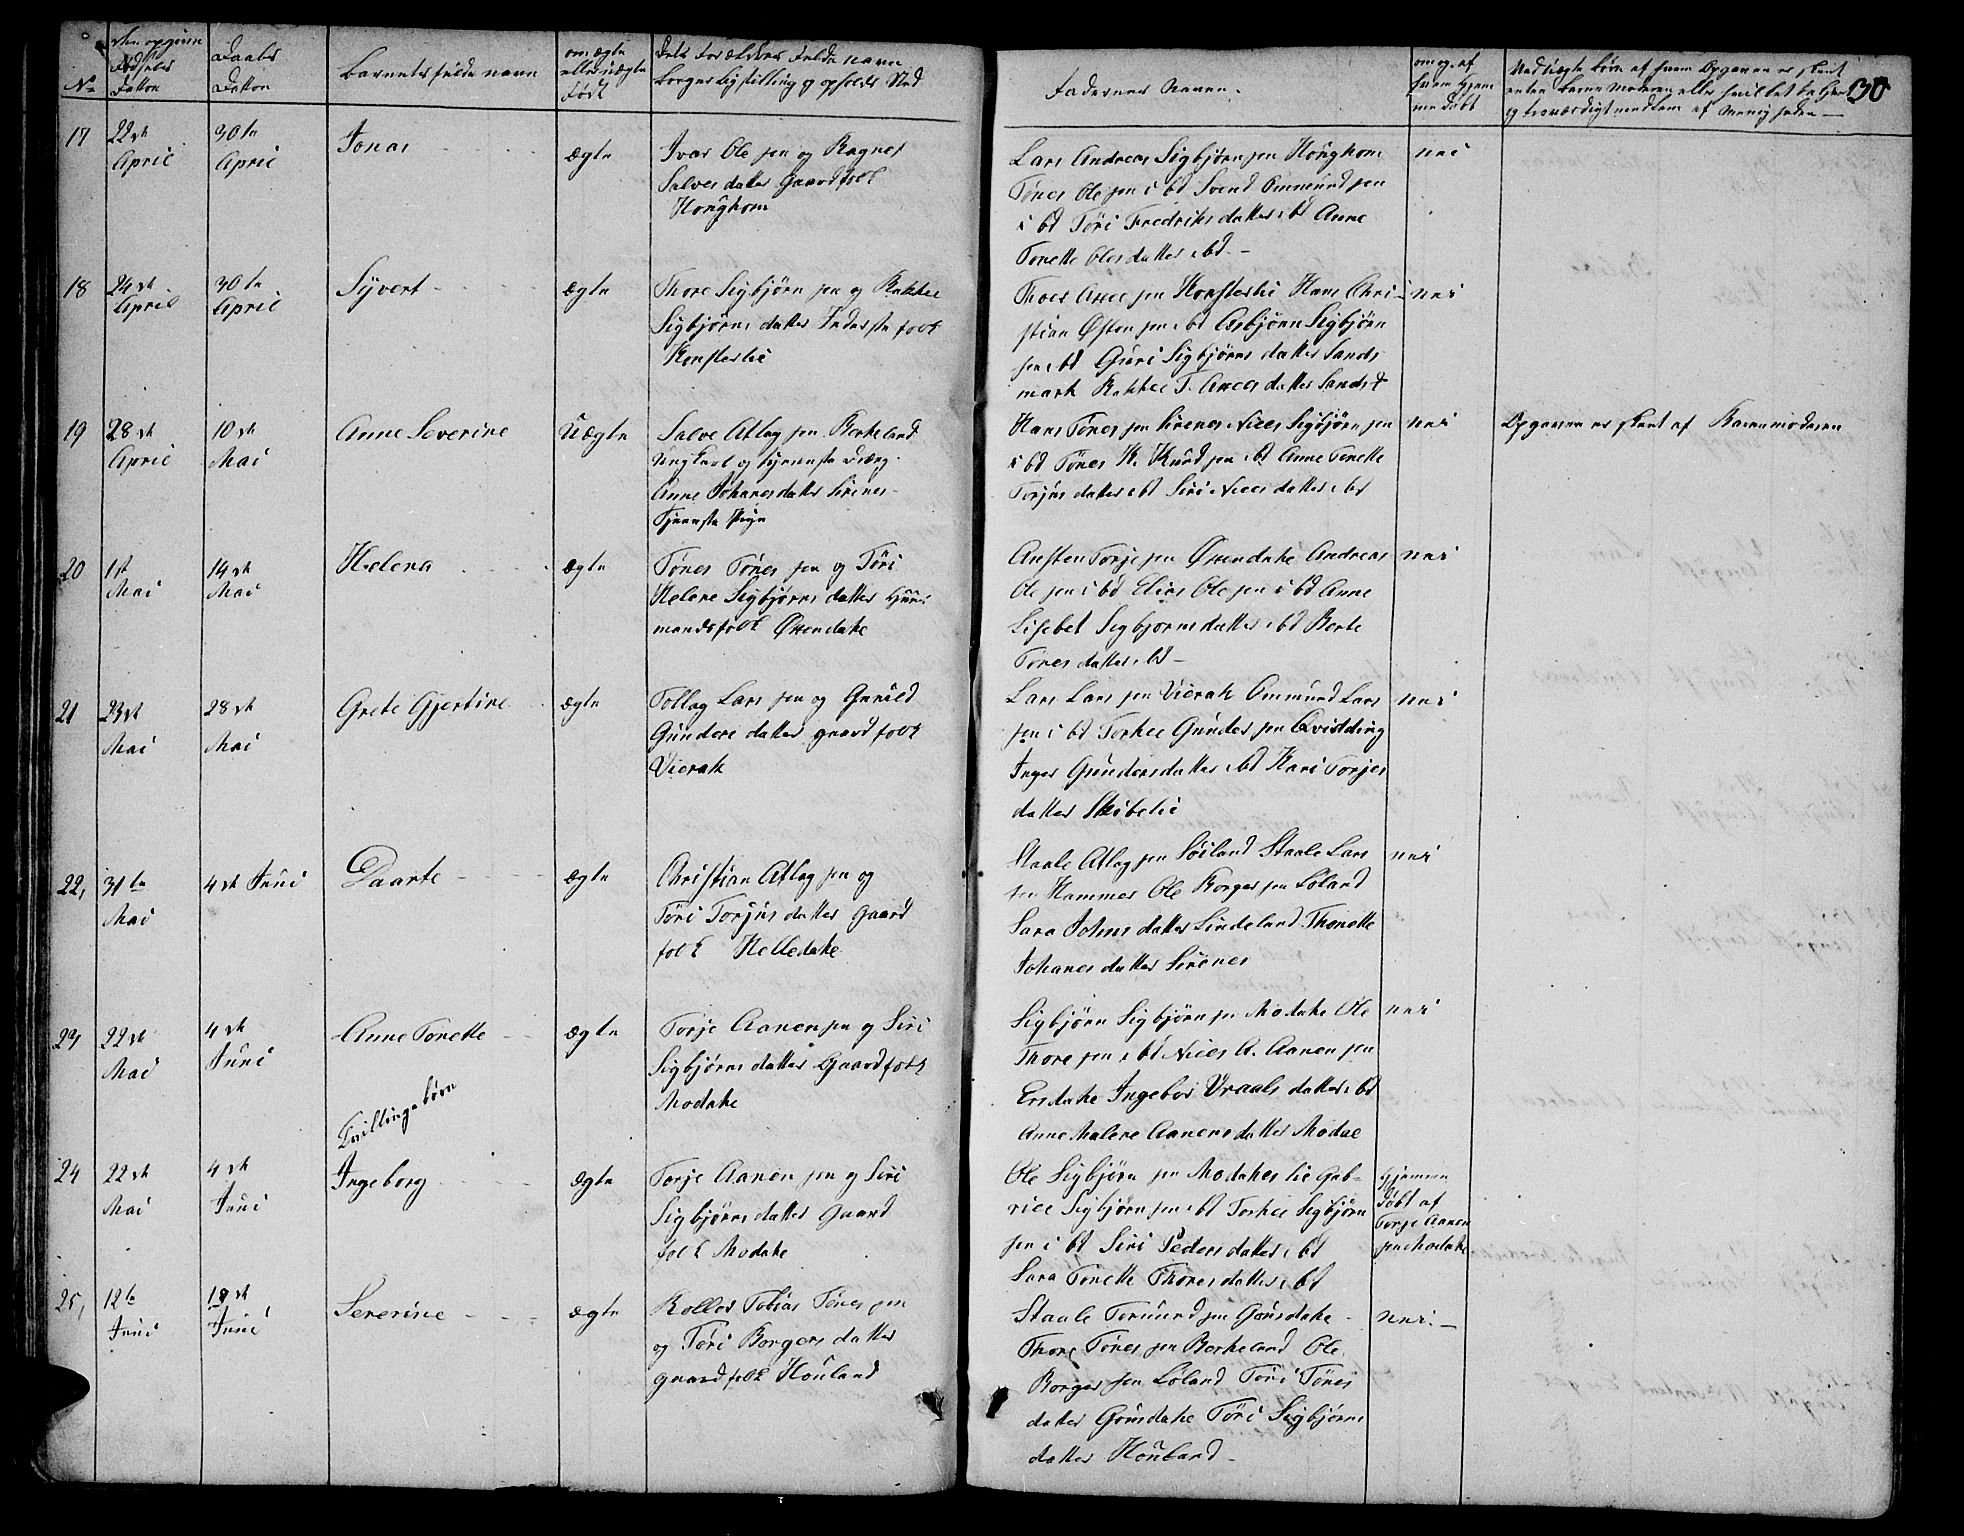 No
den opgivne
Fødsels
Datton
Daabs
Datton
Barnets fulde navn
om ægte
eller uægte
Født
Dets Forældres Fulde navn
Borgerligstilling og opholds Sted
Faderenes Navne.
om og af
hvem Hjem
me døbt
30
17
22de
April
30te
April
Jonas
ægte
Ivar Ole sen og Ragnes
Salves datter Gaardfolk
Houghom
Lars Andreas Sigbjørn sen Houghom
Tønes Ole sen i bd Svend Ommund sen
i bd Tøri Fredriks datter i bd Anne
Tonette Oles datter i bd.
nei
18
24de
April
30te
April
Syvert
ægte
Thore Sigbjørn sen og Rakkel
Sigbjørns datter Inderste folk
Konsterlie
Thores Axel sen Konsterlie Hans Chri-
stian Østen sen i bd Asbjørn Sigbjørn
sen i bd Guri Sigbjørns datter Sands
mark Rakkel T. Axels datter Sandsd
nei
19
28de
April
10de
Mai
Anne Severine
Uægte
Salve Atlag sen Berkeland
Ungkarl og tjeneste Dreng.
Anne Johanes datter Sirenes
Tjeneste Pige
Hans Tønes sen Sirenes Niels Sigbjørn sen
i bd Tønes K. Knud sen i bd Anne Tonette
Torjus datter i bd Siri Niels datter i bd
nei
Opgaven er skeet af Barnemoderen
20
1ste
Mai
14de
Mai
Helena
ægte
Tønes Tønes sen og Tøri
Helene Sigbjørns datter Huus
mandsfolk Øxendahl
Ansten Torje sen Øxendahl Andreas
Ole sen i bd Elias Ole sen i bd Anne
Lisebet Sigbjørns datter i bd Berte
Tønes datter i bd
nei
21
23de
Mai
28de
Mai
Grete Gjertine
ægte
Tollag Lars sen og Gunild
Gunders datter gaard folk
Vierak
Lars Lars sen Vierak Ommund Lars
sen i bd Torkel Gunder sen Qvidding
Inger Gunders datter i bd Kari Torjes
datter Skibelie
nei
22,
31te
Mai
4de Juni
Daarte
ægte
Christian Atlag sen og
Tøri Torjus datter Gaard
folk Helledahl
Staale Atlag sen Søiland Staale Lars
sen Hammer Ole Borger sen Løland
Sara Johns datter Lindeland Thonette
Johanes datter Sirenes
nei
23,
22de
Mai
4de
Juni
Anne Tonette
ægte
Torje Aanen sen og Siri
Sigbjørns datter Gaardfolk
Modahl
Sigbjørn Sigbjørn sen Modahl Ole
Thore sen i bd Niels A. Aanen sen
Ersdahl Ingebor Vraals datter i bd
Anne Malene Aanens datter Modal
nei
Tvillingebørn
24
22de
Mai
4de
Juni
Ingeborg
ægte
Torje Aanen sen og Siri
Sigbjørns datter Gaard
folk Modahl
Ole Sigbjørn sen Modahlslie Gab-
riel Sigbjørn sen i bd Torkel Sigbjørn
sen i bd Siri Peders datter i bd
Sara Tonette Thores datter i bd
Hjemme
Døbt af
Torje Aanen
sen Modahl
25,
12te
Juni
18de
Juni
Severine
ægte
Rollov Tobias Tønes sen
og Tøri Borgers datter
gaard folk Houland
Staale Tormund sen Gousdahl
Thore Tønes sen Berkeland Ole
Borger sen Løland Tøri Tønes
datter Gousdahl Tøri Sigbjørns
datter Houland
nei